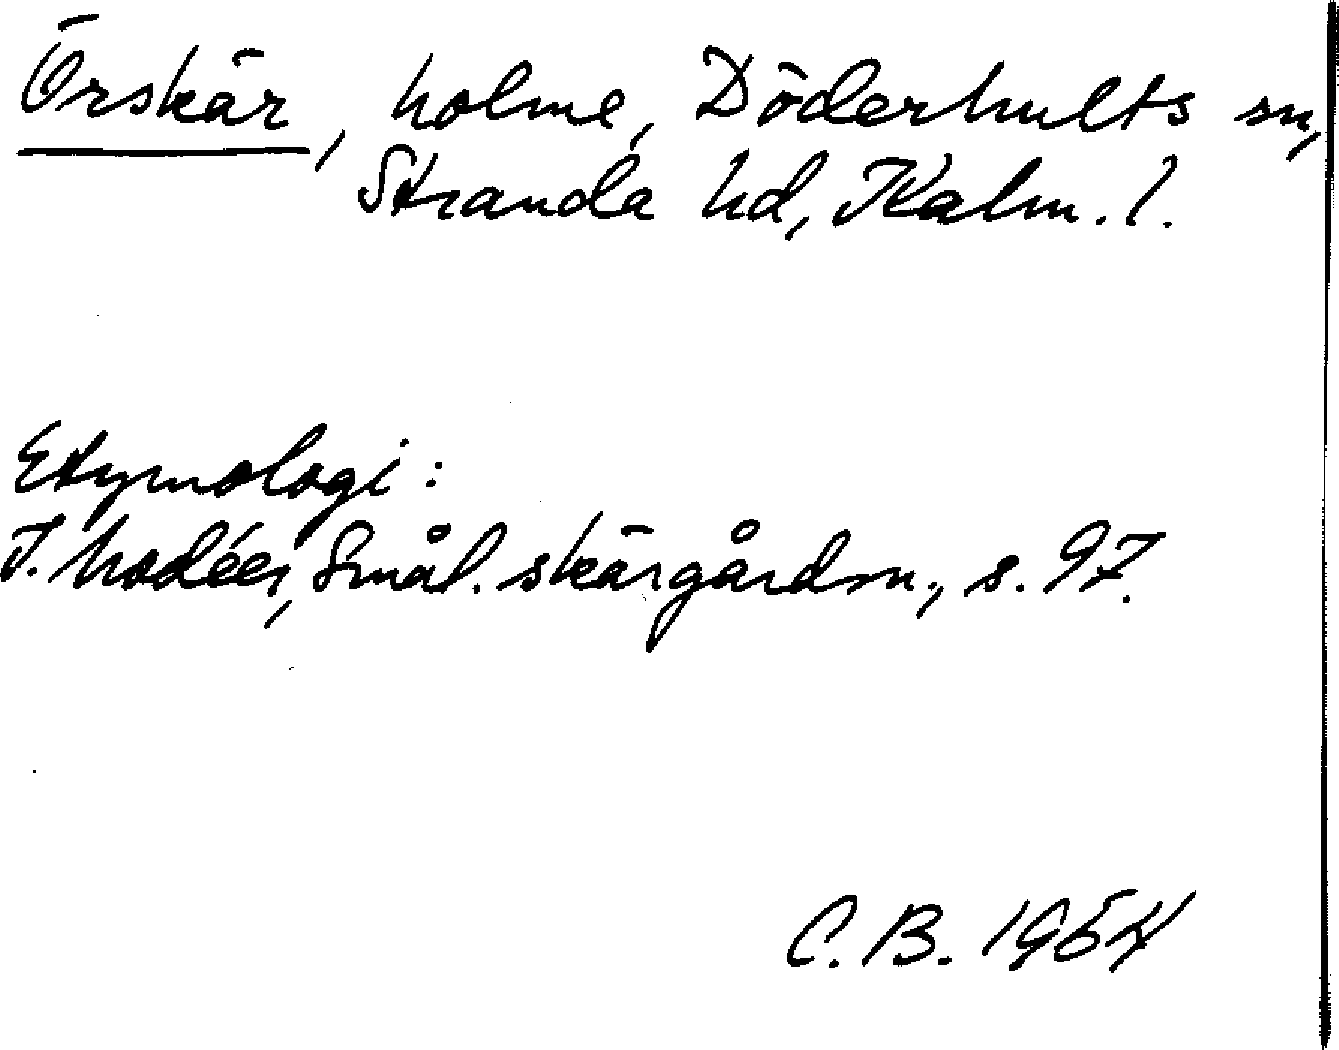 Örskär, holme, Döderhults sn,
Stranda hd, Kalm. l.
Etymologi:
I. Modéer, Smål. skärgårdsn., s. 97.
C. B. 1954